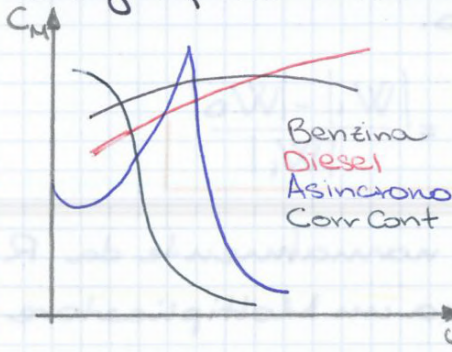 C_M
Benzina
Diesel
Asincrono
Corr Cont